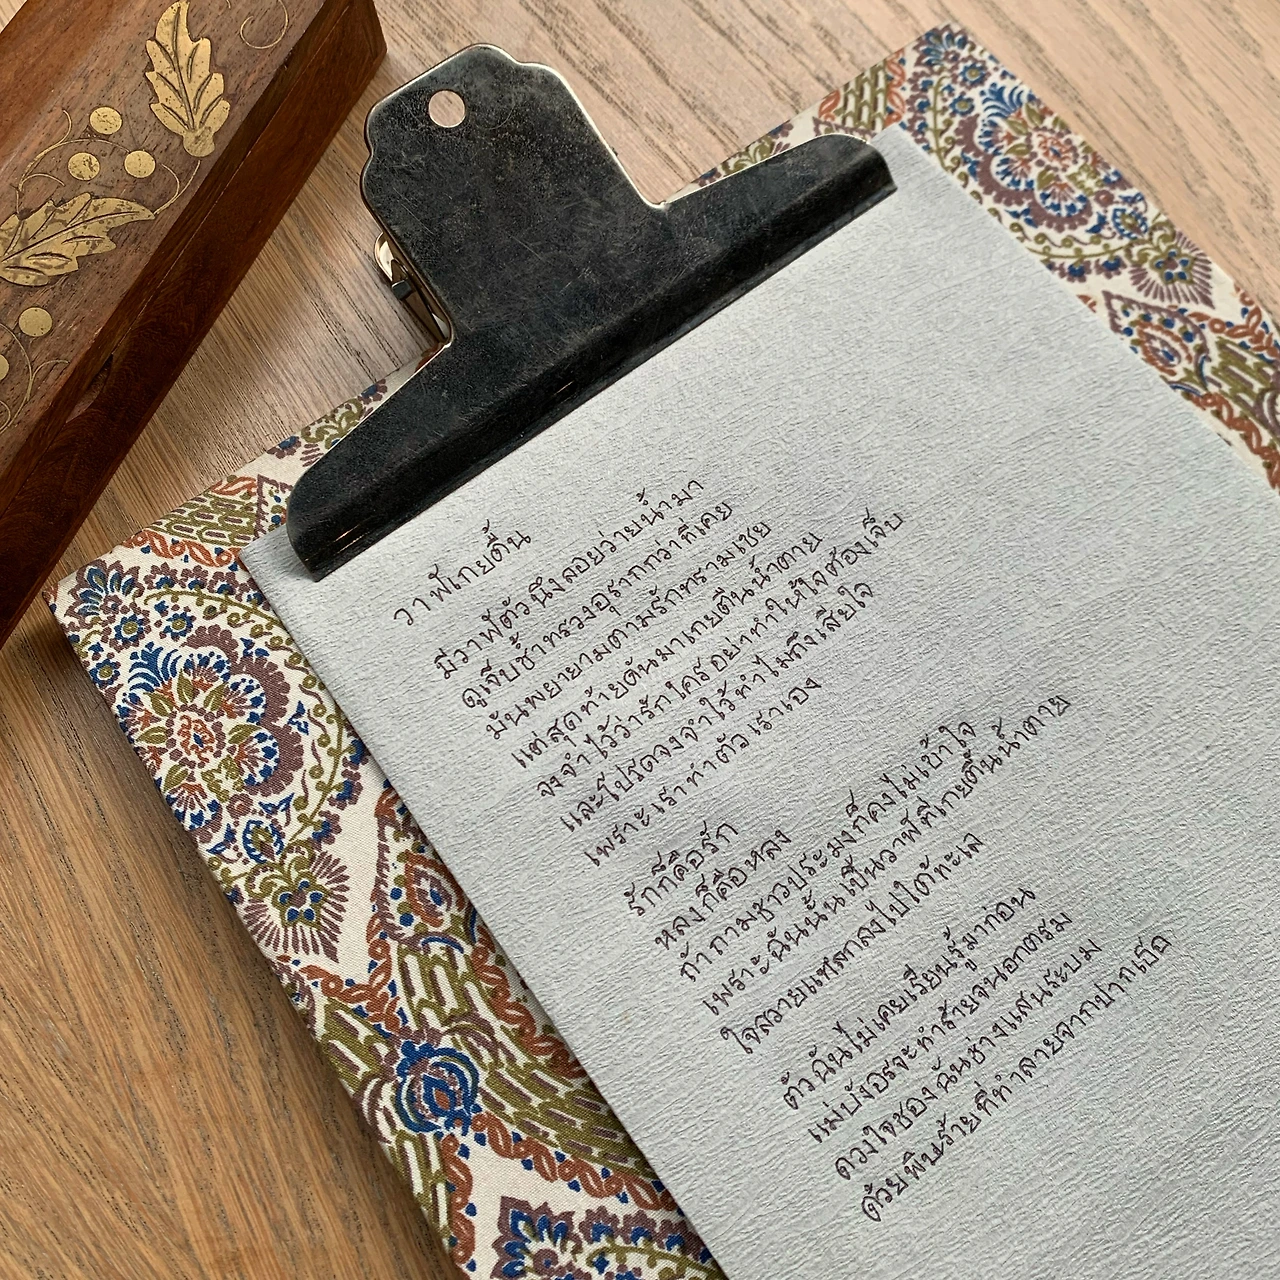 วาฬเกยตื้น
มีวาฬตัวนึงลอยว่ายน้ำมา
ดูเจ็บช้ำทรวงอุรากกว่าที่เคย
มันพยายามตามรักทรามเชย
แต่สุดท้ายดันมาเกยตืนน้ำตาย
จงจำไว้ว่ารักใครอย่าทำให้ใจต้องเจ็บ
และโปรดจงจำไว้ทำไมถึงเสียใจ
เพราะเราทำตัวเราเอง
รักก็คือรัก
หลงก็คือหลง
ถ้าถามชาวประมงก็คงไม่เข้าใจ
เพราะฉันนั้นเป็นวาฬที่เกยตื้นน้ำตาย
ใจสวายแหลกลงไปใต้ทะเล
ตัวฉันไม่เคยเรียนรู้มาก่อน
แม่บังอรจะทำร้ายจนอกตรม
ดวงใจของฉันช่างแสนระบม
ด้วยพิษร้ายที่ทำลายจากปากเธอ